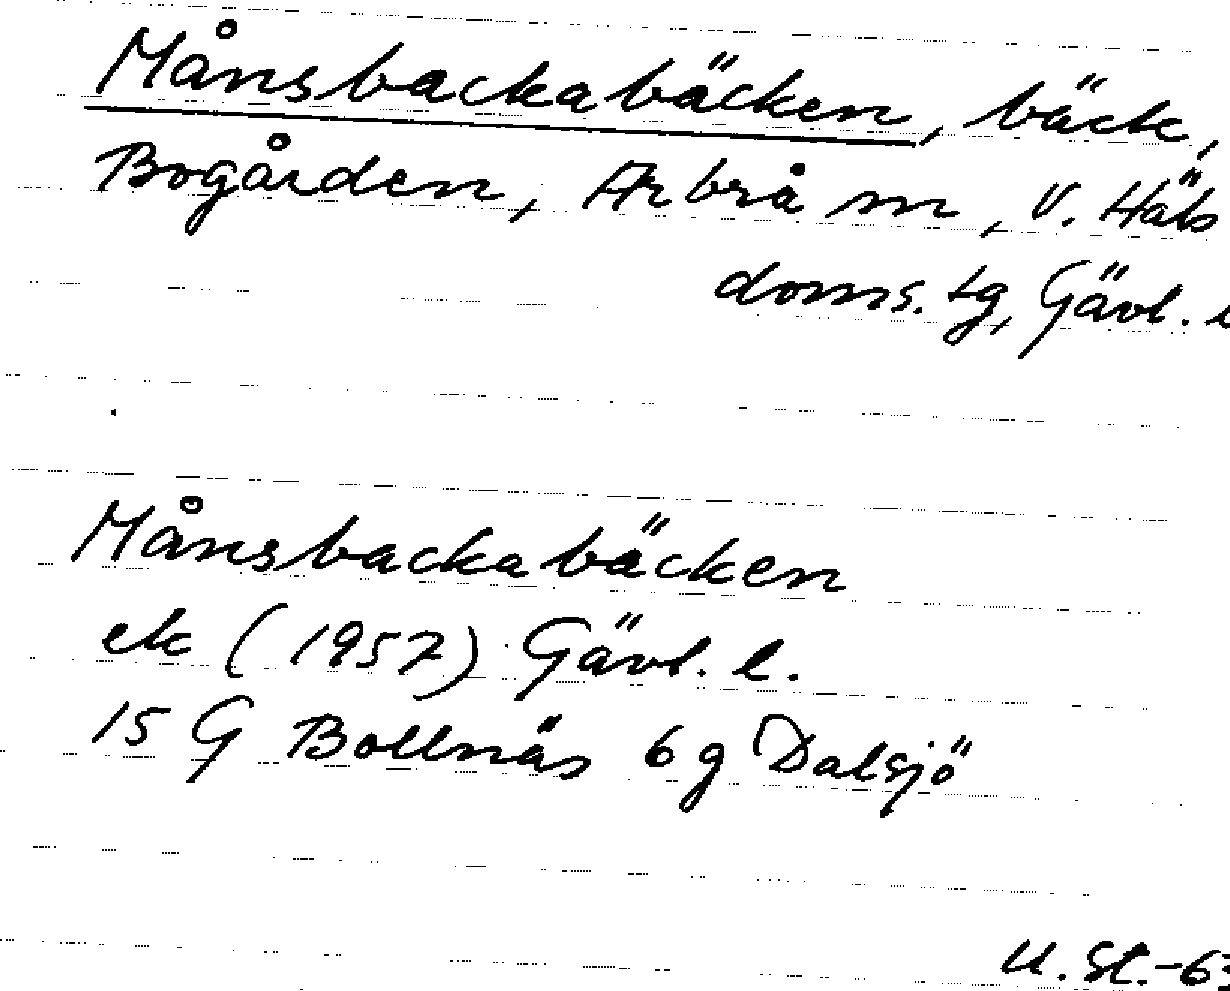 Månsbackabäcken, bäck,
Bogården, Arbrå m, V. Häls
doms. tg, Gävl. l
Månsbackabäcken
ek (1957) Gävl. l.
15 G Bollnäs 6 g Dalsjö
U. St.-63